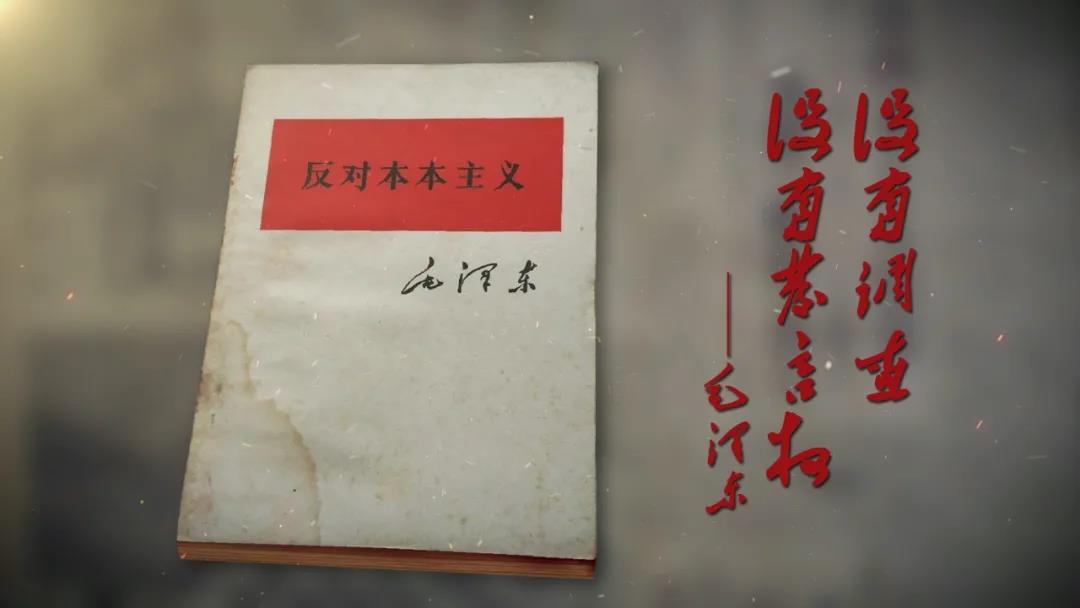 反对本本主义
毛泽东
没有调查
没有发言权
——毛泽东